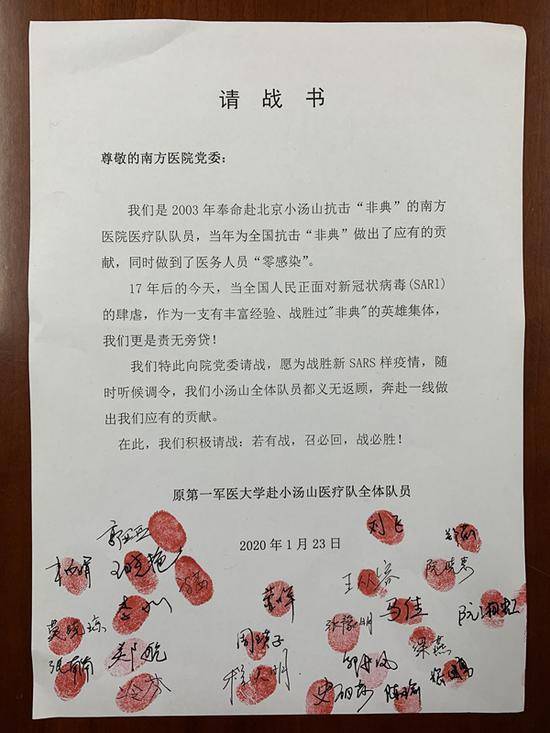 请战书
尊敬的南方医院党委：
我们是 2003 年奉命赴北京小汤山抗击“非典”的南方
医院医疗队队员，当年为全国抗击“非典”做出了应有的贡
献，同时做到了医务人员“零感染”。
17 年后的今天，当全国人民正面对新冠状病毒(SARI)
的肆虐，作为一支有丰富经验、战胜过"非典"的英雄集体，
我们更是责无旁贷！
我们特此向院党委请战，愿为战胜新 SARS 样疫情，随
时听候调令，我们小汤山全体队员都义无返顾，奔赴一线做
出我们应有的贡献。
在此，我们积极请战：若有战，召必回，战必胜！
原第一军医大学赴小汤山医疗队全体队员
2020 年 1 月 23 日
刘飞
马佳
梁燕